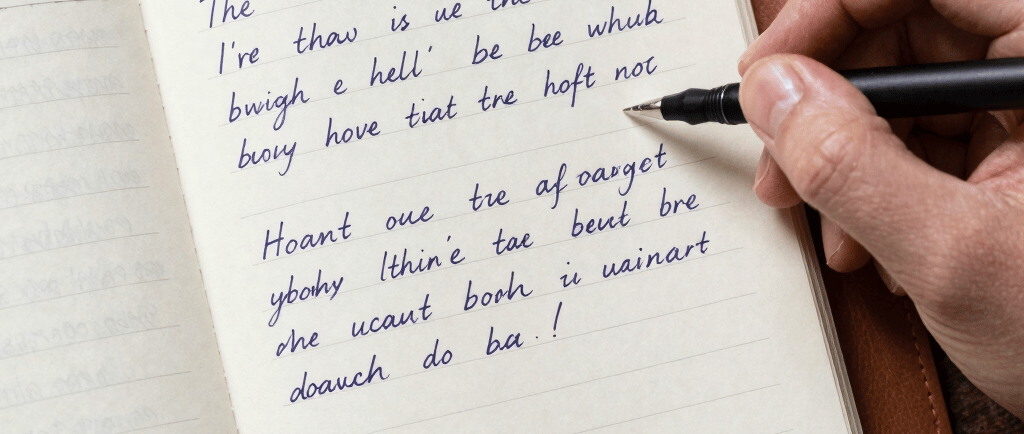 The
I're thav is ue the
bwigh e hell' be bee whub
buoy hove tiat tre hoft not
Hoant oue tre af oarget
ybohy Ithin'e tae beut bre
ohe ucaut booh ii uainart
doauch do ba..!